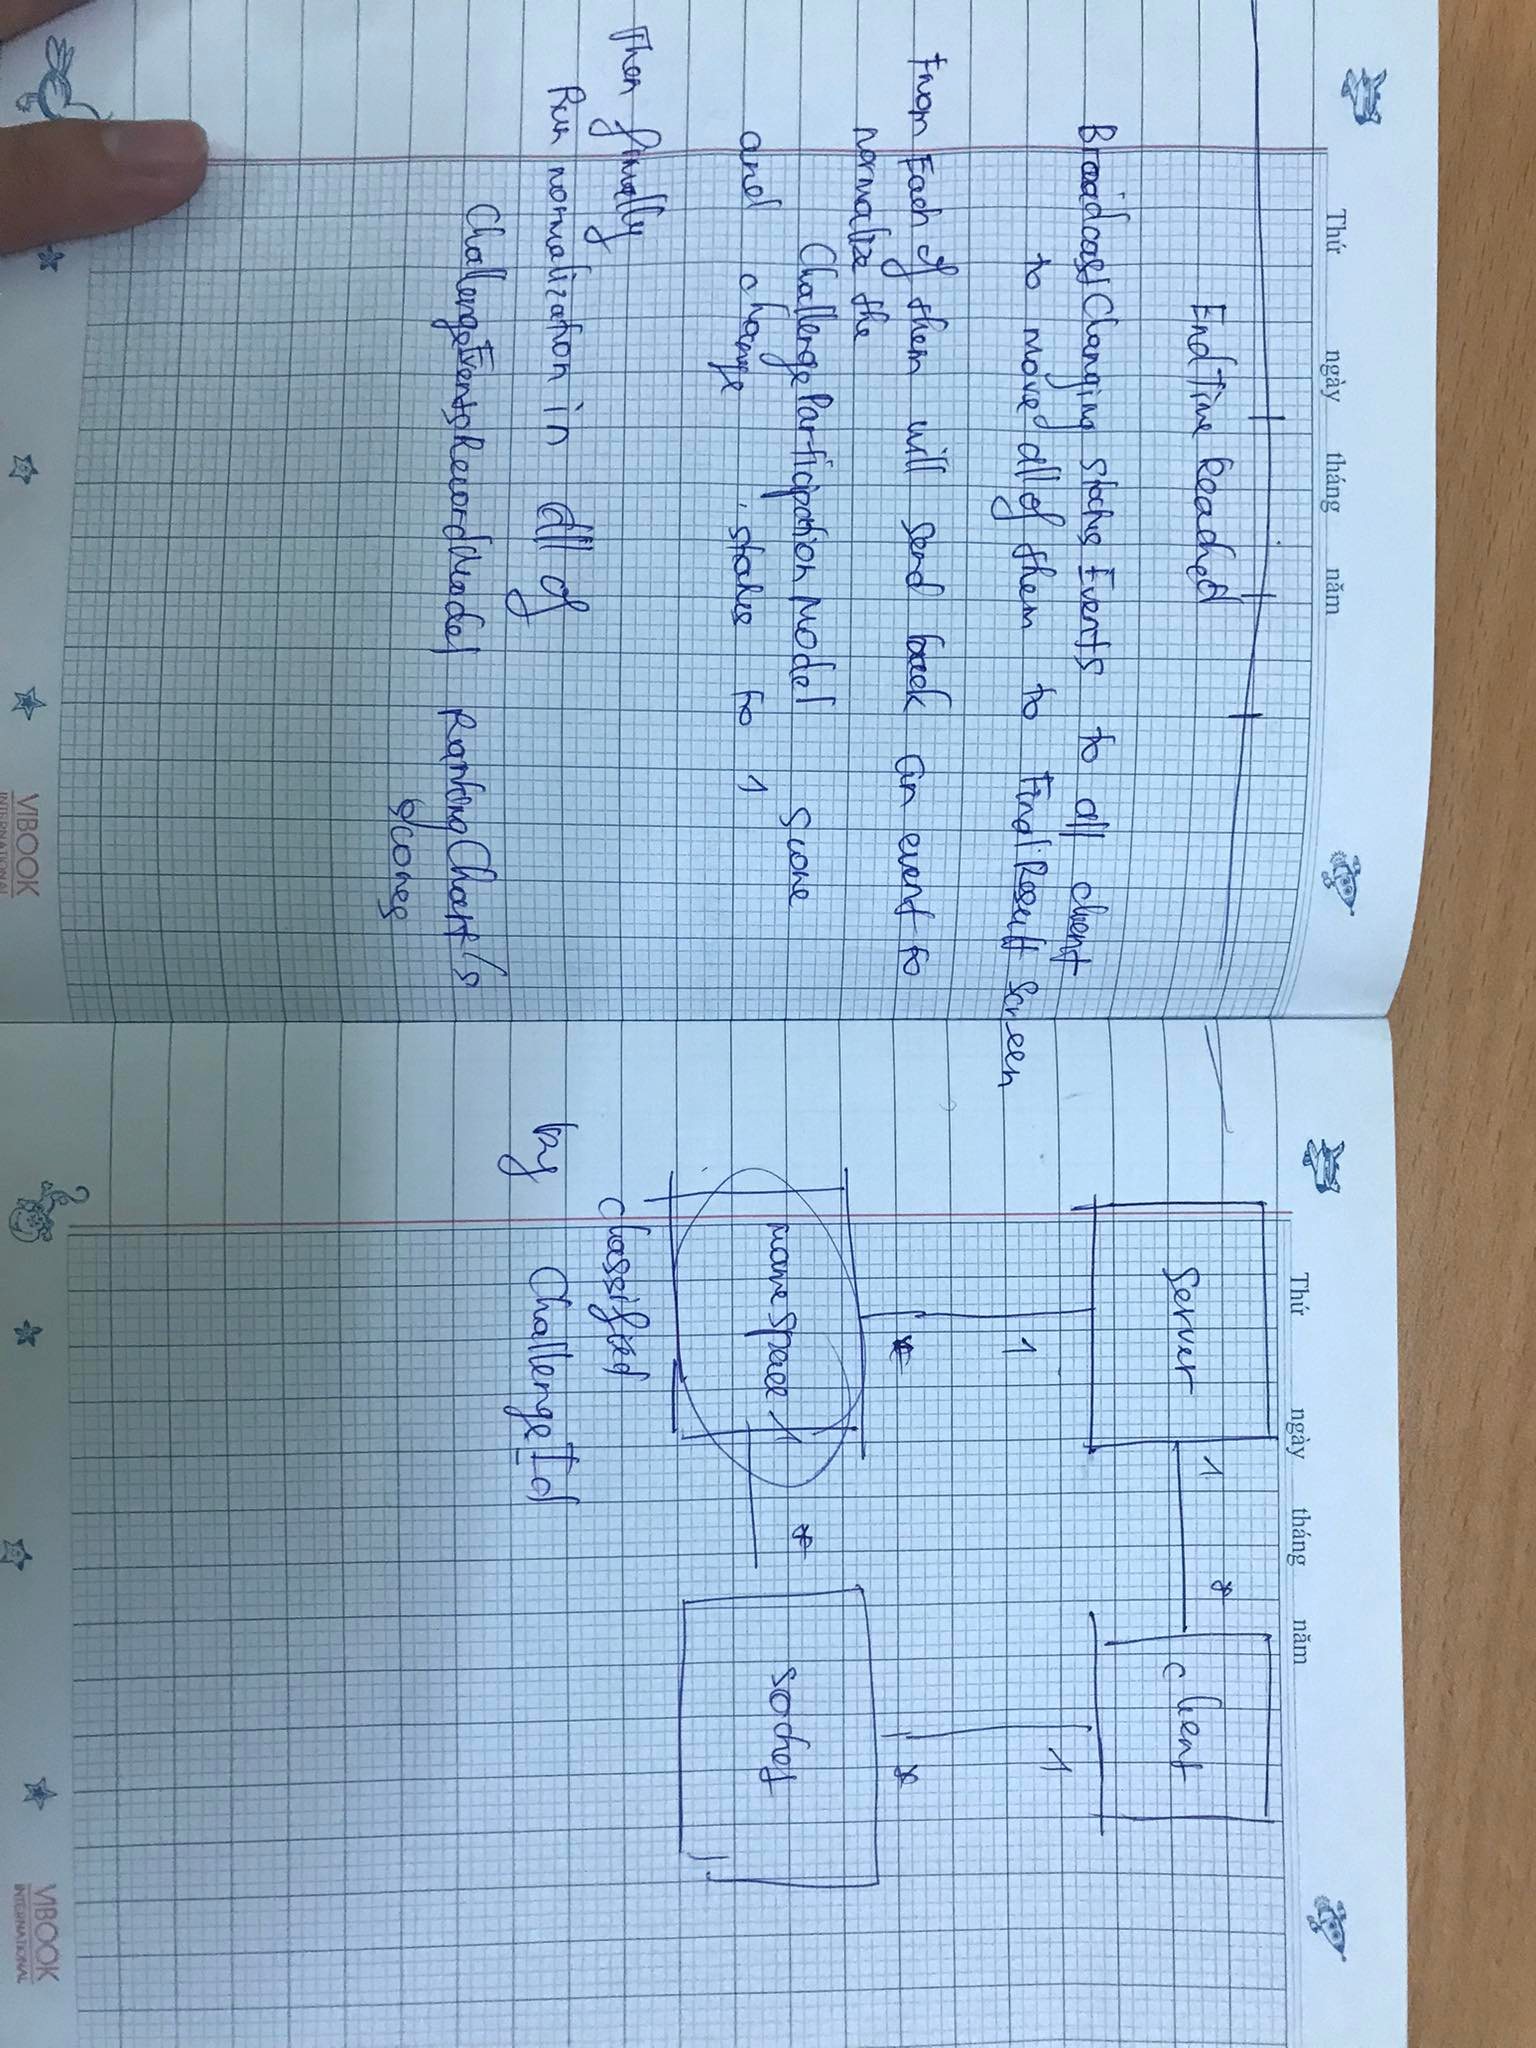 Thứ ngày tháng năm
EndTime Reached
BroadcastChanging status Events to all client
to move all of them to Final Result Screen
From Each of them will send back an event to
normalize the
ChallengeParticipationModel score
and change status to 1
Then finally
Run normalization in all of
ChallengeEventsRecordModel RankingChart's
scores
VIBOOK
INTERNATIONAL
Thứ ngày tháng năm
server 1 * client
1 1
* *
namespace 1 * socket
classified
by ChallengeId
VIBOOK
INTERNATIONAL